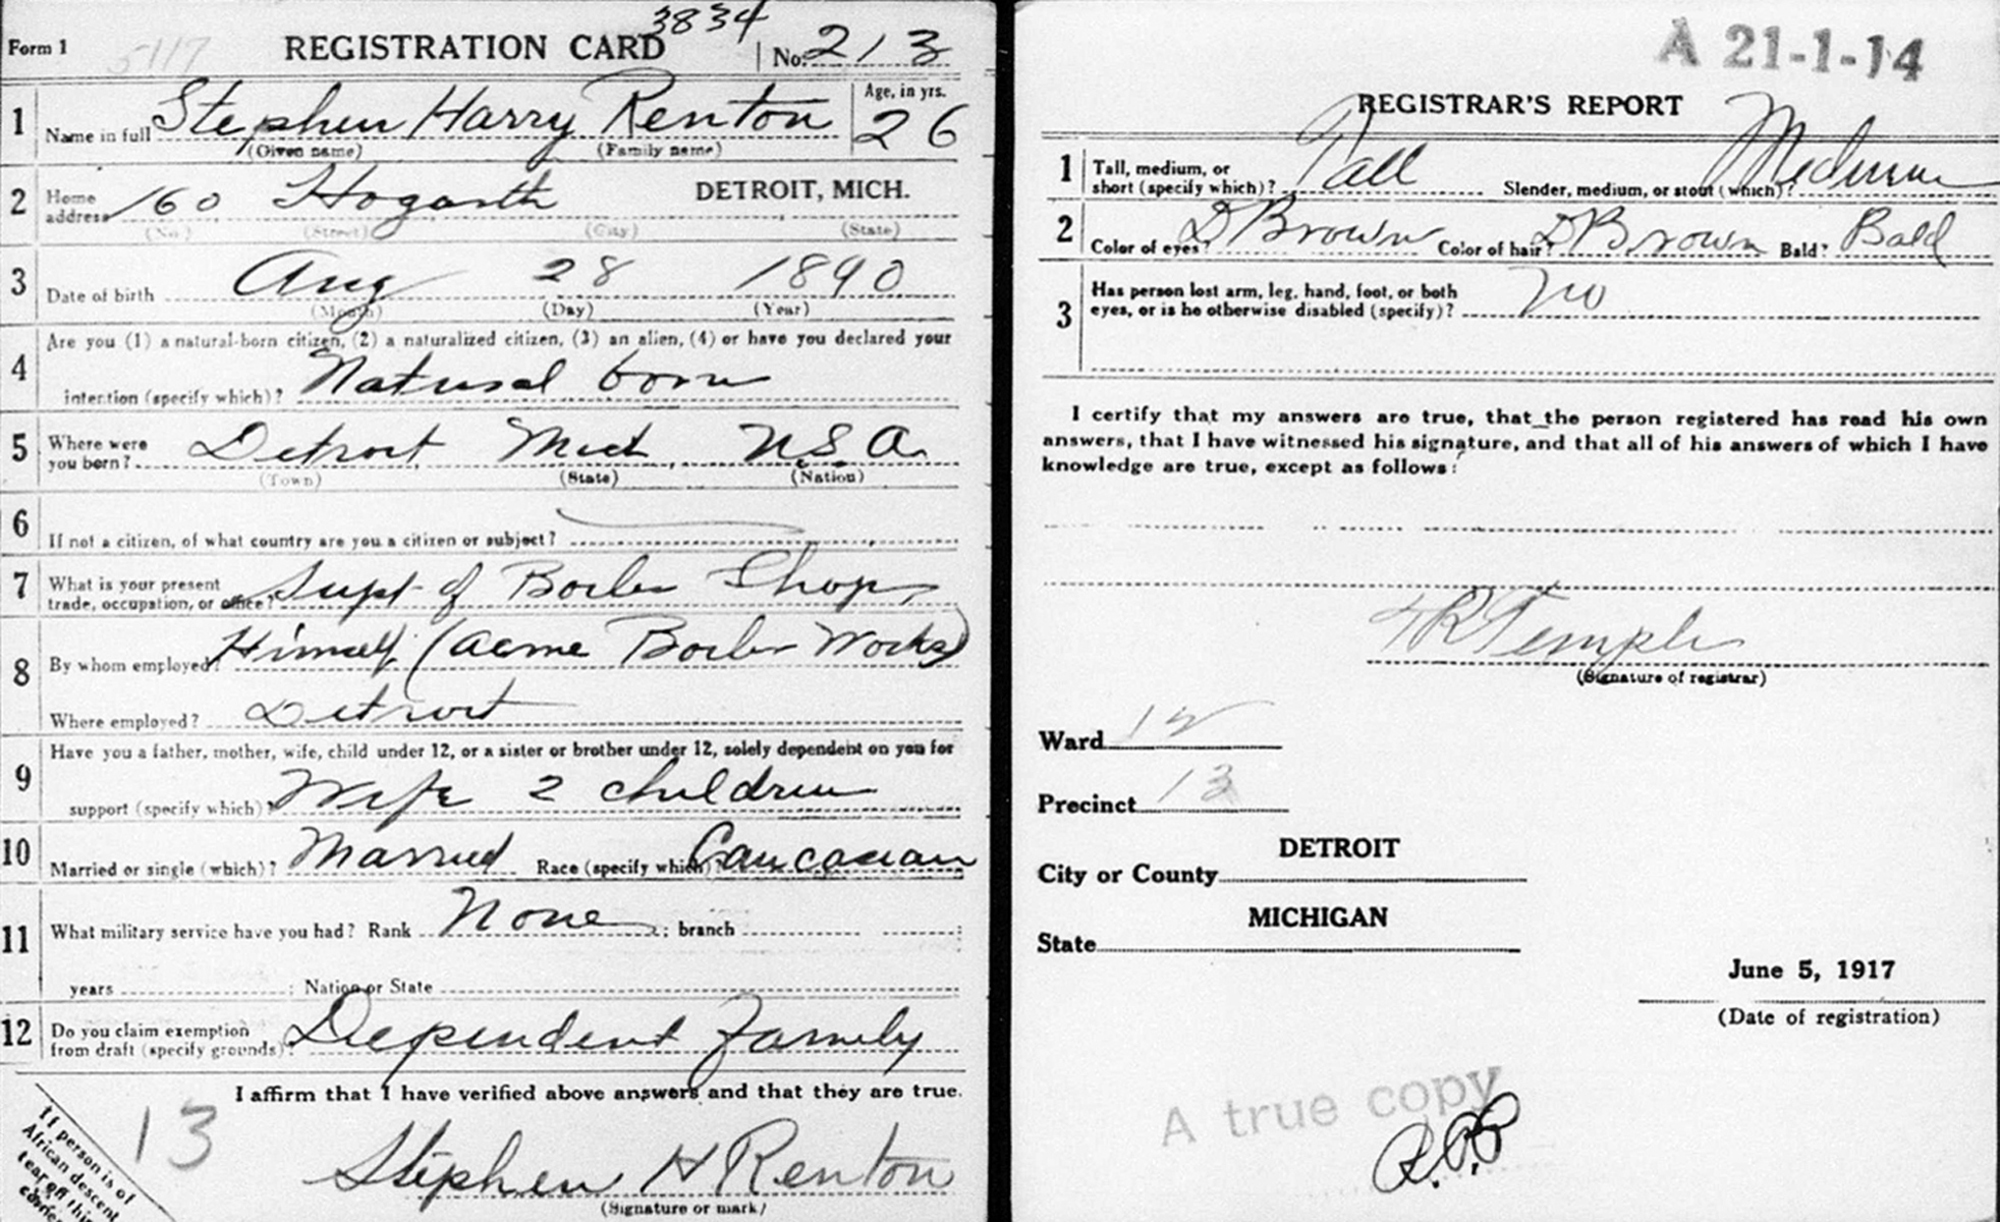 3834
Form 1 5117 REGISTRATION CARD No. 213
1 Name in full Stephen Harry Renton Age, in yrs. 26
(Given name) (Family name)
2 Home address 160 Hogarth DETROIT, MICH.
(No.) (Street) (City) (State)
3 Date of birth Aug 28 1890
(Month) (Day) (Year)
4 Are you (1) a natural-born citizen, (2) a naturalized citizen, (3) an alien, (4) or have you declared your
intention (specify which)? Natural born
5 Where were you born? Detroit Mich U.S.A.
(Town) (State) (Nation)
6 If not a citizen, of what country are you a citizen or subject?
7 What is your present trade, occupation, or office? Supt of Boiler Shop
8 By whom employed? Himself (Acme Boiler Works)
Where employed? Detroit
9 Have you a father, mother, wife, child under 12, or a sister or brother under 12, solely dependent on you for
support (specify which)? Wife 2 children
10 Married or single (which)? Married Race (specify which)? Caucasian
11 What military service have you had? Rank None; branch
years ; Nation or State
12 Do you claim exemption from draft (specify grounds)? Dependent Family
I affirm that I have verified above answers and that they are true.
13
Stephen H Renton
(Signature or mark)
If person is of
African descent
tear off this
corner
A 21-1-14
REGISTRAR'S REPORT
1 Tall, medium, or short (specify which)? Tall Slender, medium, or stout (which)? Medium
2 Color of eyes? D Brown Color of hair? D Brown Bald? Bald
3 Has person lost arm, leg, hand, foot, or both
eyes, or is he otherwise disabled (specify)? no
I certify that my answers are true, that the person registered has read his own
answers, that I have witnessed his signature, and that all of his answers of which I have
knowledge are true, except as follows:
Temple
(Signature of registrar)
Ward 12
Precinct 13
DETROIT
City or County
MICHIGAN
State
June 5, 1917
(Date of registration)
A true copy